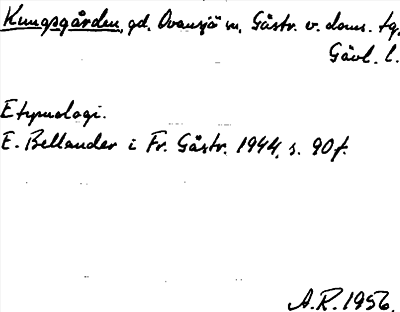 Kungsgården, gd, Ovansjö sn, Gästr. v. doms. tg.
Gävl. l.
Etymologi.
E. Bellander i Fr. Gästr. 1944, s. 90 f.
A.R. 1956.